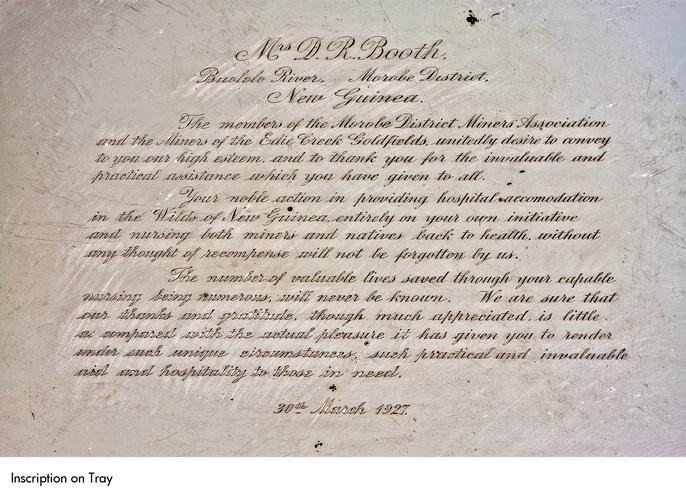 Mrs D. R. Booth.
Bulolo River, Morobe District,
New Guinea.
The members of the Morobe District Miners' Association
and the Miners of the Edie Creek Goldfields, unitedly desire to convey
to you our high esteem, and to thank you for the invaluable and
practical assistance which you have given to all.
Your noble action in providing hospital accomodation
in the Wilds of New Guinea, entirely on your own initiative
and nursing both miners and natives back to health, without
any thought of recompense will not be forgotten by us.
The number of valuable lives saved through your capable
nursing being numerous, will never be known. We are sure that
our thanks and gratitude, though much appreciated, is little
as compared with the actual pleasure it has given you to render
under such unique circumstances, such practical and invaluable
aid and hospitality to those in need.
30th March 1927.
Inscription on Tray